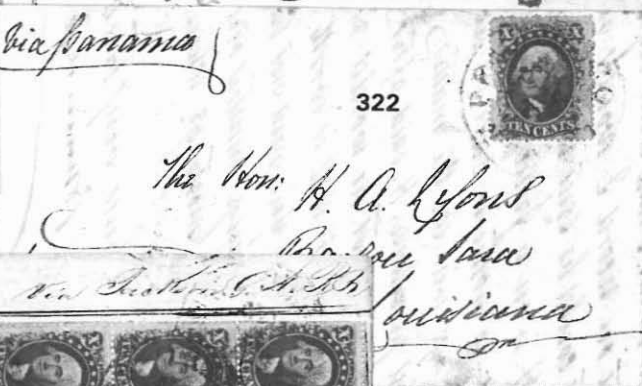 Via Panama
322
X X
TEN CENTS
The Hon: H. A. Lyons
Bayou Sara
Louisiana
via